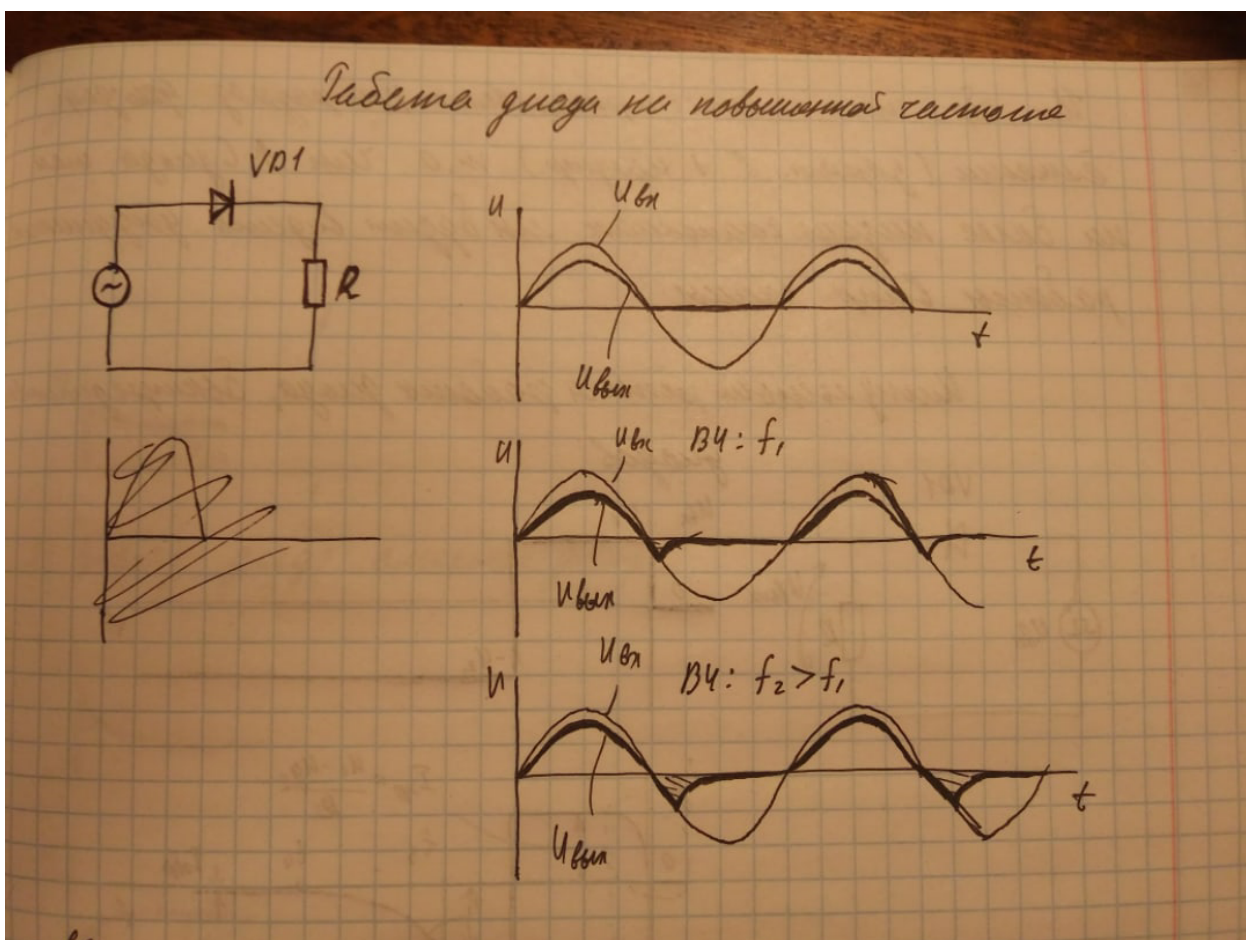 Работа диода на повышенной частоте
VD1
R
u
Uвх
Uвых
t
u
Uвх
ВЧ: f₁
Uвых
t
u
Uвх
ВЧ: f₂ > f₁
Uвых
t